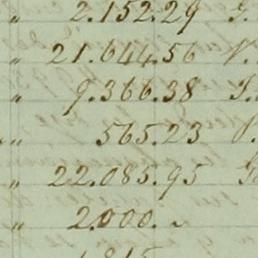 " 2.152.29
" 21.644.56
" 9.366.38
" 565.23
" 22.085.95
" 2.000.~